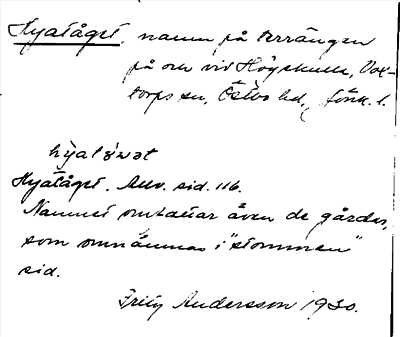 Hyatåget, namn på terrängen
på om vid Högskulle, Vox-
torps sn, Östbo hd,
hyalåwət
Hyalåget. Anv. sid. 116.
Namnet omtalar även de gårdar,
som omnämnas i "stommen"
sid.
Frity Andersson 1930.